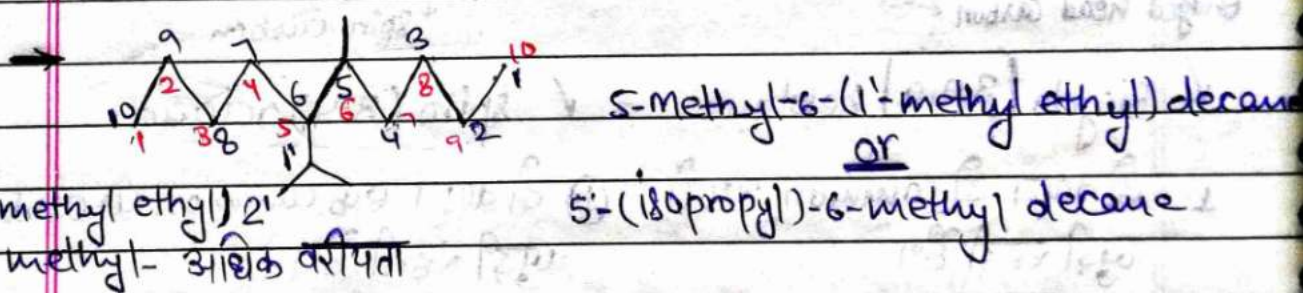 9 7 3 10
2 4 6 5 8 1
10 6 6
1 3 8 5 4 7 9 2
1'
5-methyl-6-(1'-methyl ethyl) decane
or
methyl ethyl) 2'
5-(isopropyl)-6-methyl decane
methyl- अधिक वरीयता